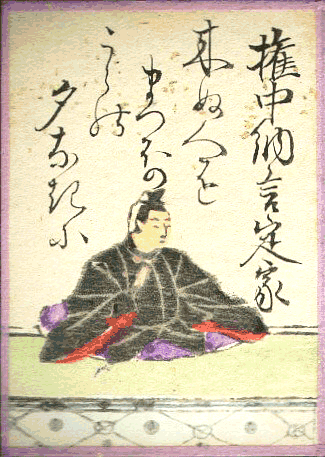 權中納言定家
来ぬ人を
まつほの
うらの
夕なきに